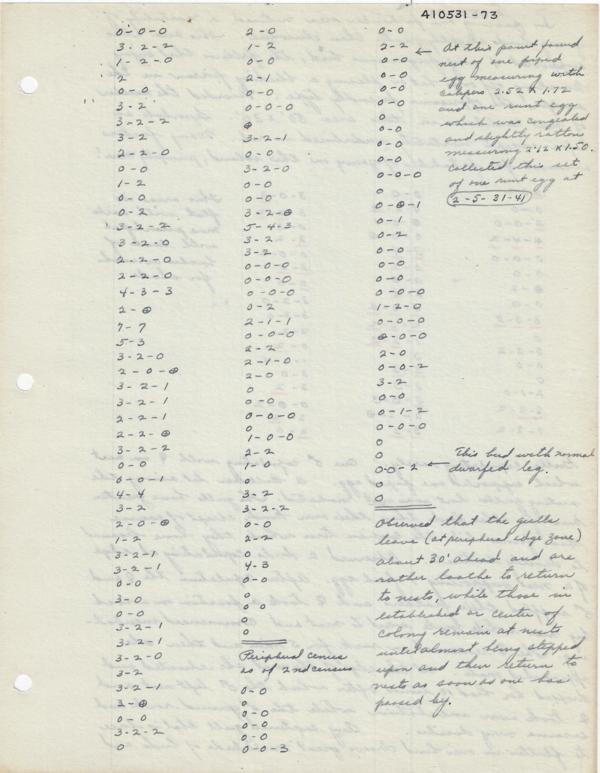 410531-73
0-0-0
3-2-2
1-2-0
2
0-0
3-2
3-2-2
3-2
2-2-0
0-0
1-2
0-0
0-2
3-2-2
3-2-0
2-2-0
2-2-0
4-3-3
2-⊕
7-7
5-3
3-2-0
2-0-⊕
3-2-1
3-2-1
2-2-1
2-2-⊕
3-2-2
0-0
0-0-1
4-4
3-2
2-0-⊕
1-2
3-2-1
3-2-1
0-0
3-0
0-0
3-2-1
3-2-1
3-2-0
3-2
3-2-1
3-⊕
0-0
3-2-2
0
2-0
1-2
0-0
2-1
0-0
0-0-0
⊕
3-2-1
0-0
3-2-0
0-0
0-0
3-2-⊕
5-4-3
3-2
3-2
0-0-0
0-0-0
0-0-0
0-2
2-1-1
0-0-0
2-2
2-1-0
2-0
0
0-0
0-0-0
0
1-0-0
2-2
1-0
0
3-2
3-2-2
0-0
2-2
0
4-3
0-0
0
0 0
0
0
Peripheral census
as of 2nd census
0-0
0
0-0
0-0
0-0-3
0-0
2-2 ← At this point found
nest of one pipped
egg measuring with
calipers 2.52 X 1.72
and one runt egg
which was congealed
and slightly rotten
measuring 2.12 X 1.50.
Collected this set
of one runt egg at
2-5-31-41
0-0
0-0
0-0
0-0
0
0-0
0-0
0-0
0-0-0
0
0-⊕-1
0-1
0-2
0-0
0-0
0-0
0-0-0
1-2-0
0-0-0
⊕-0-0
2-0
0-0-2
3-2
0-0
0-1-2
0-0-0
0
0
0-0-2 ← This bird with normal
dwarfed leg.
0
0
Observed that the gulls
leave (at peripheral edge zone)
about 30' ahead and are
rather loathe to return
to nests, while those in
established or center of
colony remain at nests
until almost being stepped
upon and then return to
nests as soon as one has
passed by.